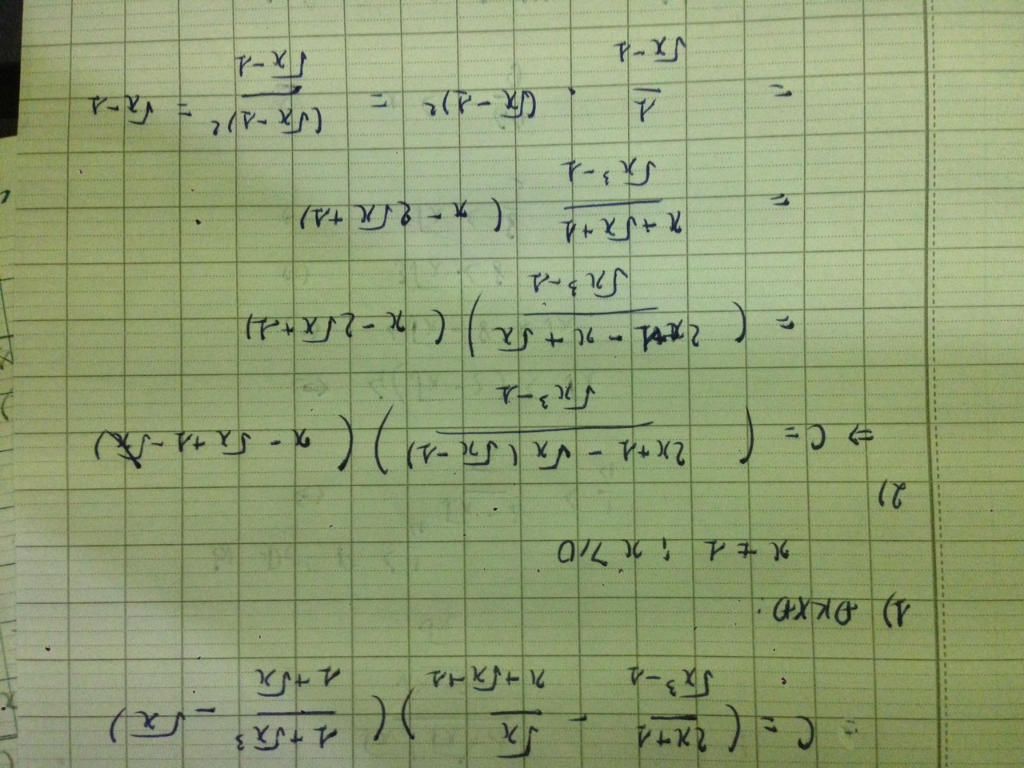 C = ( (2x+1)/(√x³-1) - √x/(x+√x+1) ) ( (1+√x³)/(1+√x) - √x )
1) ĐKXĐ:
x ≠ 1 ; x ≥ 0
2)
⇒ C = ( (2x+1 - √x(√x-1))/(√x³-1) ) ( x - √x + 1 - √x )
= ( (2x+1 - x + √x)/(√x³-1) ) ( x - 2√x + 1 )
= (x+√x+1)/(√x³-1) ( x - 2√x + 1 )
= 1/(√x-1) . (√x - 1)² = (√x-1)²/(√x-1) = √x-1